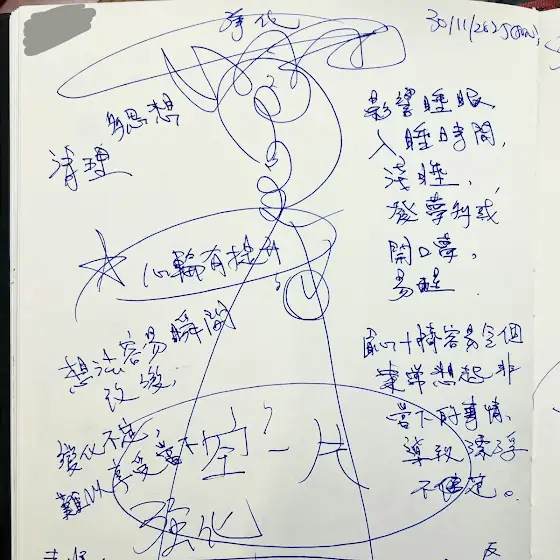 淨化
30/11/2025(SUN)
多思想
清理
影響睡眠
入睡時間,
淺睡,
發夢多或
開口夢,
易醒.
心輪有提升
想法容易瞬間
改變,
變化不定,
難以享受當下
空一片
強化
事情容易令個
想起非
當下的事情,
導致漂浮
不健定。